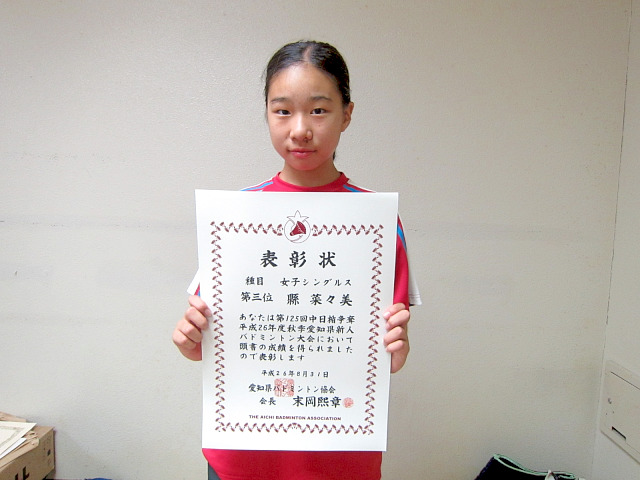 表彰状
種目 女子シングルス
第三位 縣 菜々美
あなたは第125回中日楯争奪
平成26年度秋季愛知県新人
バドミントン大会において
頭書の成績を得られました
ので表彰します
平成26年8月31日
愛知県バドミントン協会
会長 末岡熙章
THE AICHI BADMINTON ASSOCIATION